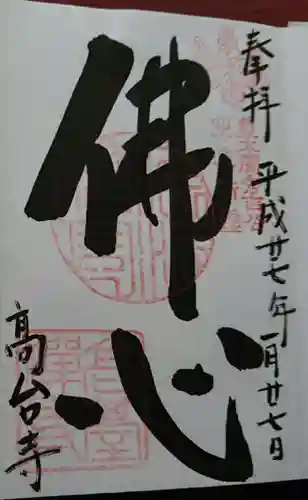 奉拝 平成廿七年一月廿七日
佛心
高台寺